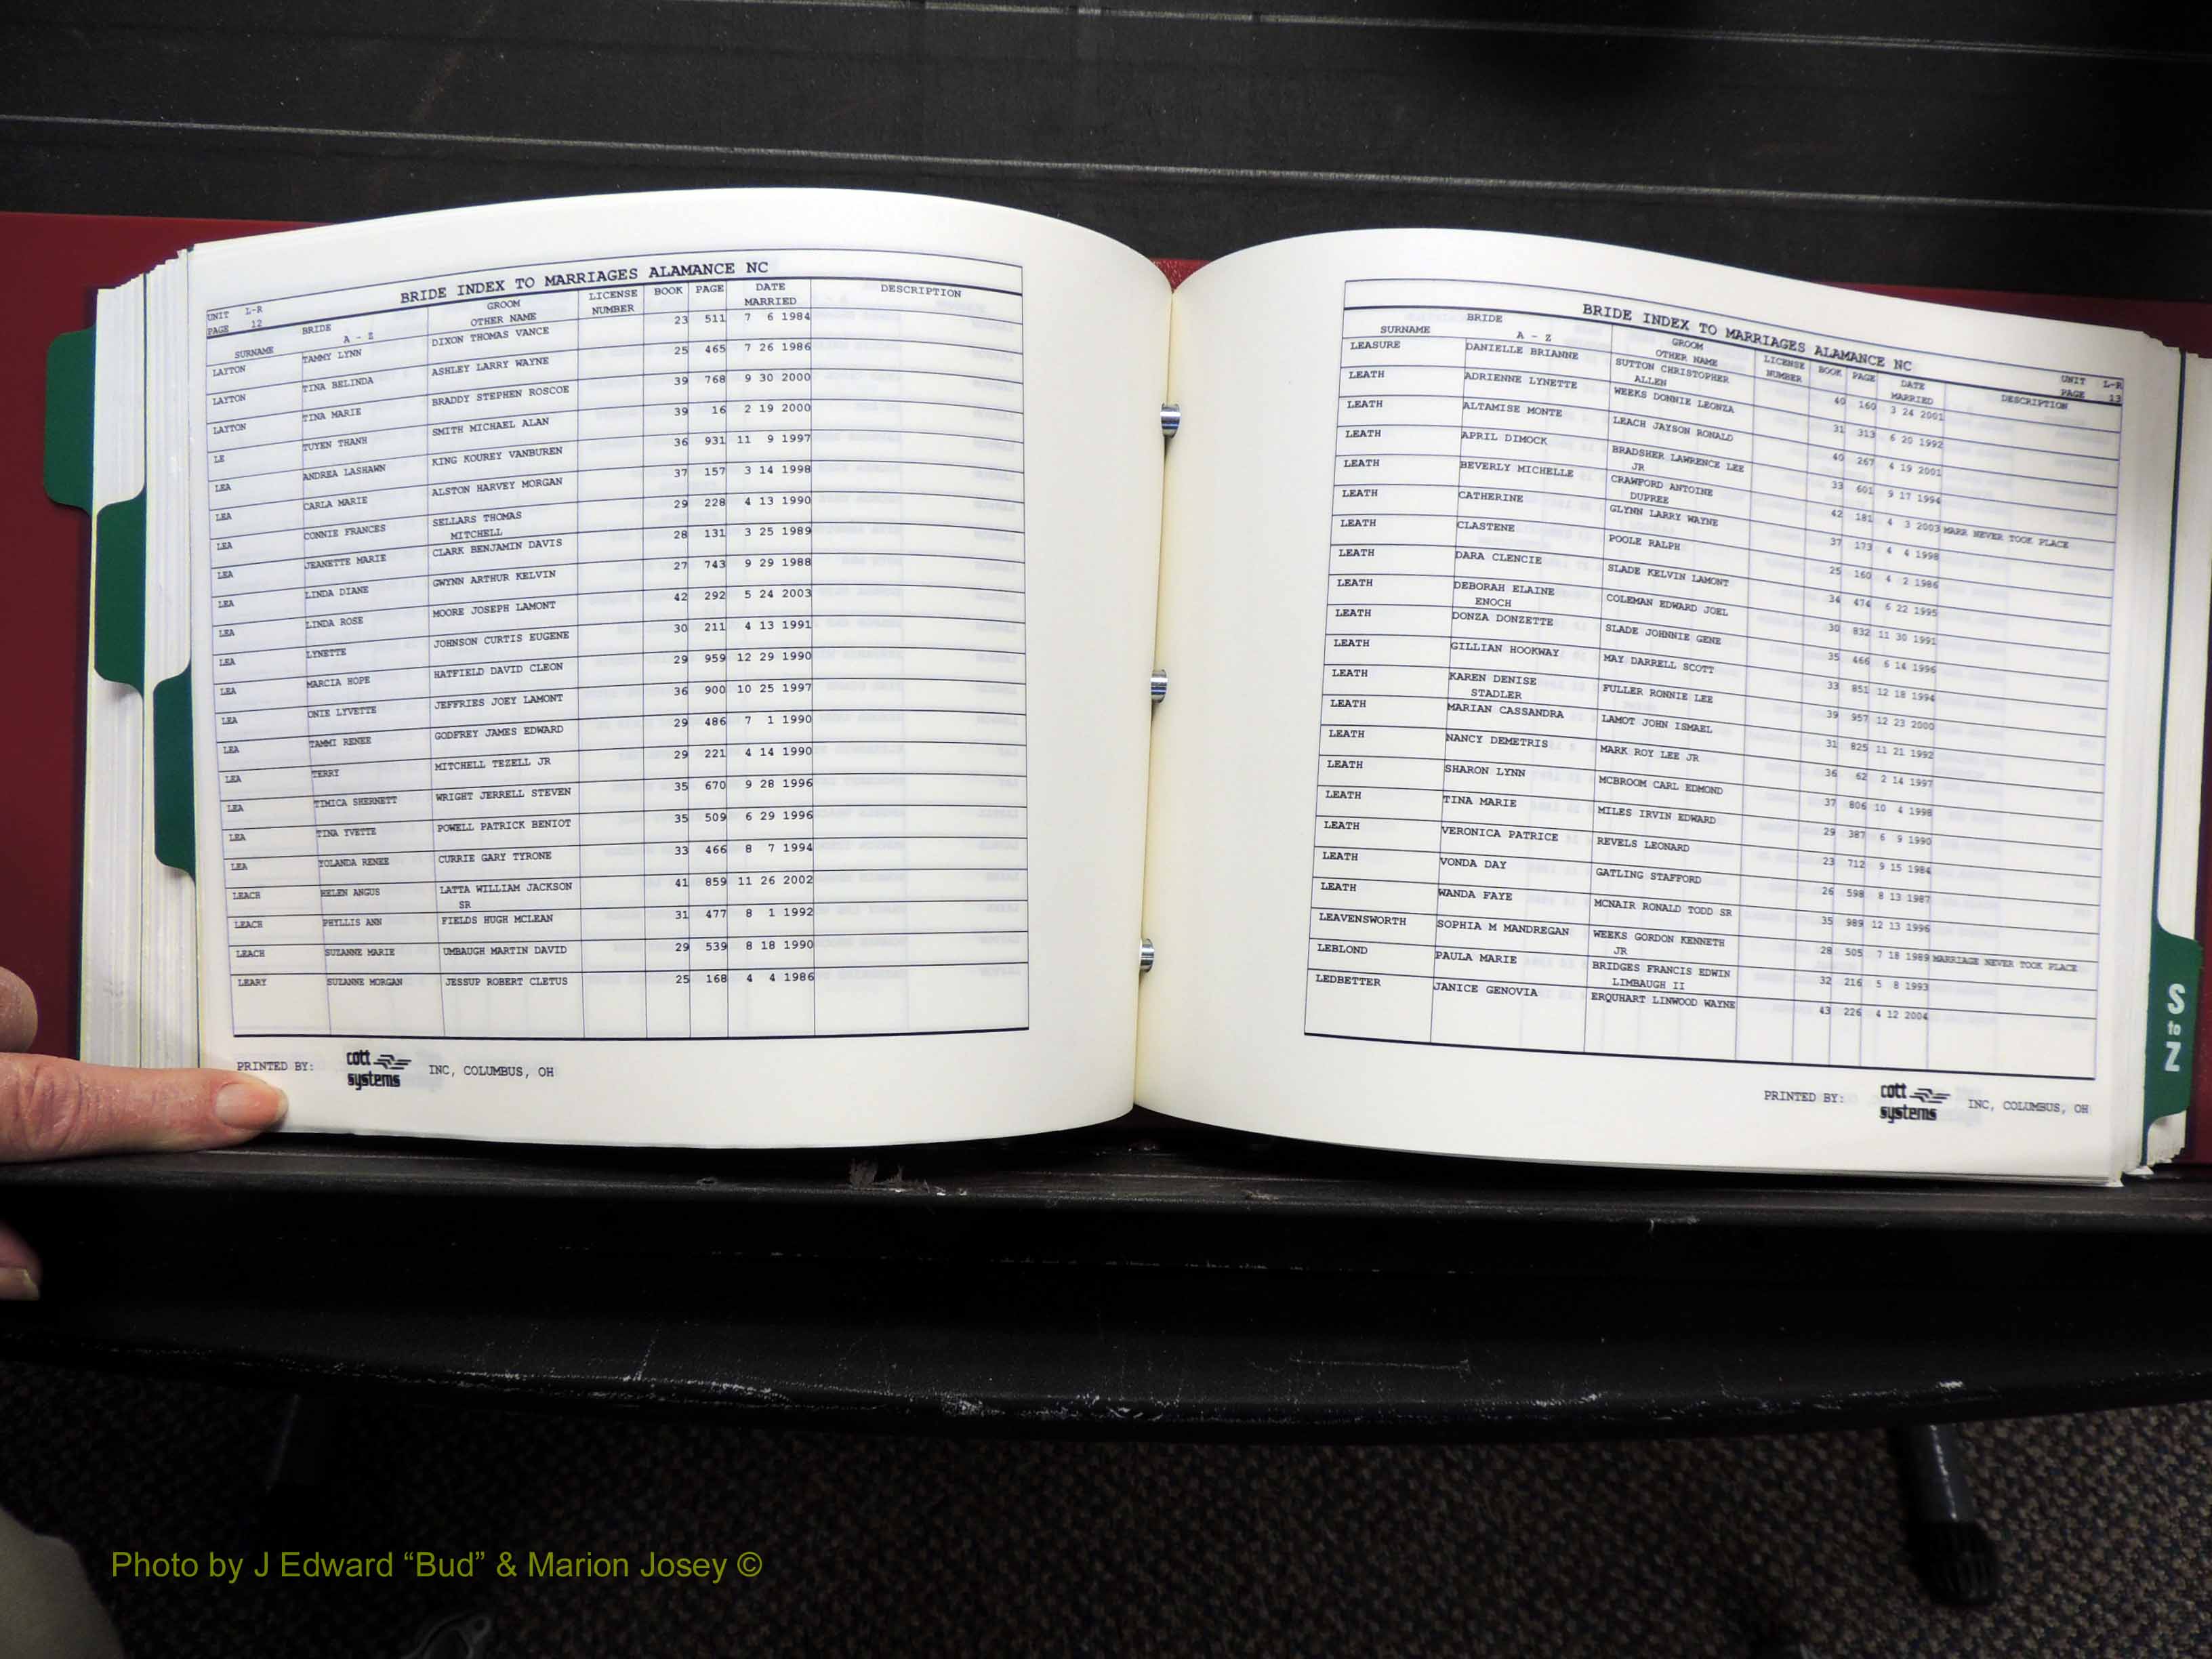 BRIDE INDEX TO MARRIAGES ALAMANCE NC
UNIT L-R
PAGE 12
SURNAME BRIDE A - Z GROOM OTHER NAME LICENSE NUMBER BOOK PAGE DATE MARRIED DESCRIPTION
LAYTON TAMMY LYNN DIXON THOMAS VANCE 23 511 7 6 1984
LAYTON TINA BELINDA ASHLEY LARRY WAYNE 25 465 7 26 1986
LAYTON TINA MARIE BRADDY STEPHEN ROSCOE 39 768 9 30 2000
LE TUYEN THANH SMITH MICHAEL ALAN 39 16 2 19 2000
LEA ANDREA LASHAWN KING KOUREY VANBUREN 36 931 11 9 1997
LEA CARLA MARIE ALSTON HARVEY MORGAN 37 157 3 14 1998
LEA CONNIE FRANCES SELLARS THOMAS 29 228 4 13 1990
MITCHELL
LEA JEANETTE MARIE CLARK BENJAMIN DAVIS 28 131 3 25 1989
LEA LINDA DIANE GWYNN ARTHUR KELVIN 27 743 9 29 1988
LEA LINDA ROSE MOORE JOSEPH LAMONT 42 292 5 24 2003
LEA LYNETTE JOHNSON CURTIS EUGENE 30 211 4 13 1991
LEA MARCIA HOPE HATFIELD DAVID CLEON 29 959 12 29 1990
LEA ONIE LYVETTE JEFFRIES JOEY LAMONT 36 900 10 25 1997
LEA TAMMI RENEE GODFREY JAMES EDWARD 29 486 7 1 1990
LEA TERRY MITCHELL TEZELL JR 29 221 4 14 1990
LEA TIMICA SHERNETT WRIGHT JERRELL STEVEN 35 670 9 28 1996
LEA TINA YVETTE POWELL PATRICK BENIOT 35 509 6 29 1996
LEA YOLANDA RENEE CURRIE GARY TYRONE 33 466 8 7 1994
LEACH HELEN ANGUS LATTA WILLIAM JACKSON 41 859 11 26 2002
SR
LEACH PHYLLIS ANN FIELDS HUGH MCLEAN 31 477 8 1 1992
LEACH SUZANNE MARIE UMBAUGH MARTIN DAVID 29 539 8 18 1990
LEARY SUZANNE MORGAN JESSUP ROBERT CLETUS 25 168 4 4 1986
PRINTED BY: cott systems INC, COLUMBUS, OH
BRIDE INDEX TO MARRIAGES ALAMANCE NC
UNIT L-R
PAGE 13
SURNAME BRIDE A - Z GROOM OTHER NAME LICENSE NUMBER BOOK PAGE DATE MARRIED DESCRIPTION
LEASURE DANIELLE BRIANNE SUTTON CHRISTOPHER 40 160 3 24 2001
ALLEN
LEATH ADRIENNE LYNETTE WEEKS DONNIE LEONZA 31 313 6 20 1992
LEATH ALTAMISE MONTE LEACH JAYSON RONALD 40 267 4 19 2001
LEATH APRIL DIMOCK BRADSHER LAWRENCE LEE 33 601 9 17 1994
JR
LEATH BEVERLY MICHELLE CRAWFORD ANTOINE 42 181 4 3 2003 MARR NEVER TOOK PLACE
DUPREE
LEATH CATHERINE GLYNN LARRY WAYNE 37 173 4 4 1998
LEATH CLASTENE POOLE RALPH 25 160 4 2 1986
LEATH DARA CLENCIE SLADE KELVIN LAMONT 34 474 6 22 1995
LEATH DEBORAH ELAINE COLEMAN EDWARD JOEL 30 832 11 30 1991
ENOCH
LEATH DONZA DONZETTE SLADE JOHNNIE GENE 35 466 6 14 1996
LEATH GILLIAN HOOKWAY MAY DARRELL SCOTT 33 851 12 18 1994
LEATH KAREN DENISE FULLER RONNIE LEE 39 957 12 23 2000
STADLER
LEATH MARIAN CASSANDRA LAMOT JOHN ISMAEL 31 825 11 21 1992
LEATH NANCY DEMETRIS MARK ROY LEE JR 36 62 2 14 1997
LEATH SHARON LYNN MCBROOM CARL EDMOND 37 806 10 4 1998
LEATH TINA MARIE MILES IRVIN EDWARD 29 387 6 9 1990
LEATH VERONICA PATRICE REVELS LEONARD 23 712 9 15 1984
LEATH VONDA DAY GATLING STAFFORD 26 598 8 13 1987
LEATH WANDA FAYE MCNAIR RONALD TODD SR 35 989 12 13 1996
LEAVENSWORTH SOPHIA M MANDREGAN WEEKS GORDON KENNETH 28 505 7 18 1989 MARRIAGE NEVER TOOK PLACE
JR
LEBLOND PAULA MARIE BRIDGES FRANCIS EDWIN 32 216 5 8 1993
LIMBAUGH II
LEDBETTER JANICE GENOVIA ERQUHART LINWOOD WAYNE 43 226 4 12 2004
PRINTED BY: cott systems INC, COLUMBUS, OH
S to Z
Photo by J Edward “Bud” & Marion Josey ©